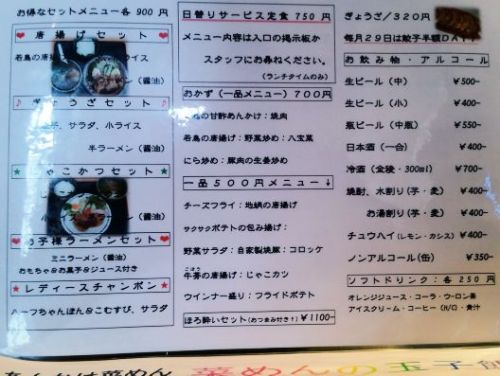 お得なセットメニュー各 900円
❤ 唐揚げセット ❤
若鳥の唐揚げ ライス
(醤油)
♪ ぎょうざセット ♪
子、サラダ、小ライス
半ラーメン(醤油)
★ じゃこかつセット ★
(醤油)
❤お子様ラーメンセット❤
ミニラーメン(醤油)
おもちゃ&お菓子&ジュース付き
★レディースチャンポン★
ハーフちゃんぽん&こむすび、サラダ
日替りサービス定食 750円
メニュー内容は入口の掲示板か
スタッフにお尋ねください。
(ランチタイムのみ)
おかず(一品メニュー)700円
若鳥の甘酢あんかけ:焼肉
若鳥の唐揚げ:野菜炒め:八宝菜
にら炒め:豚肉の生姜炒め
一品500円メニュー↓
チーズフライ:地鶏の唐揚げ
サクサクポテトの包み揚げ:
野菜サラダ:自家製焼豚:コロッケ
ごぼう
牛蒡の唐揚げ:じゃこカツ
ウインナー盛り:フライドポテト
ほろ酔いセット(おつまみ付き!)¥1100-
ぎょうざ/320円
毎月29日は餃子半額DAY
お飲み物・アルコール
生ビール(中) ¥500-
生ビール(小) ¥400-
瓶ビール(中瓶) ¥550-
日本酒(一合) ¥400-
冷酒(金陵・300ml) ¥700-
焼酎、水割り(芋・麦) ¥400-
お湯割り(芋・麦) ¥400-
チュウハイ(レモン・カシス) ¥400-
ノンアルコール(缶) ¥350-
ソフトドリンク:各 250円
オレンジジュース・コーラ・ウーロン茶
アイスクリーム・コーヒー(H/C)・青汁
菜めん 菜めんの玉子